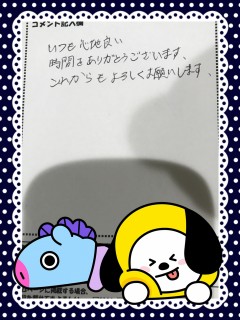 コメント記入欄
いつも心地良い
時間をありがとうございます、
これからもよろしくお願いします、
ージに掲載する場合、